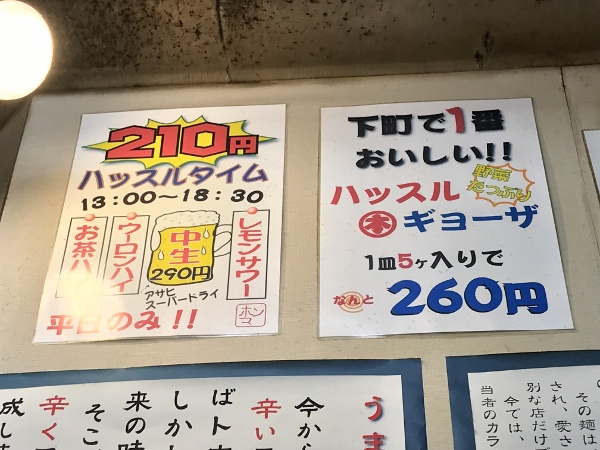 210円
ハッスルタイム
13:00～18:30
お茶ハ
ウーロンハイ
中生
290円
アサヒ
スーパードライ
レモンサワー
平日のみ!!
ホンマ
下町で1番
おいしい!!
野菜
たっぷり
ハッスル
木ギョーザ
1皿5ヶ入りで
なんと260円
うま
今から
辛い
しかし
ばト
来の時
そこ
辛く
成し
その麺は
され、愛さ
別な店だけ
今では、
当者のカラ